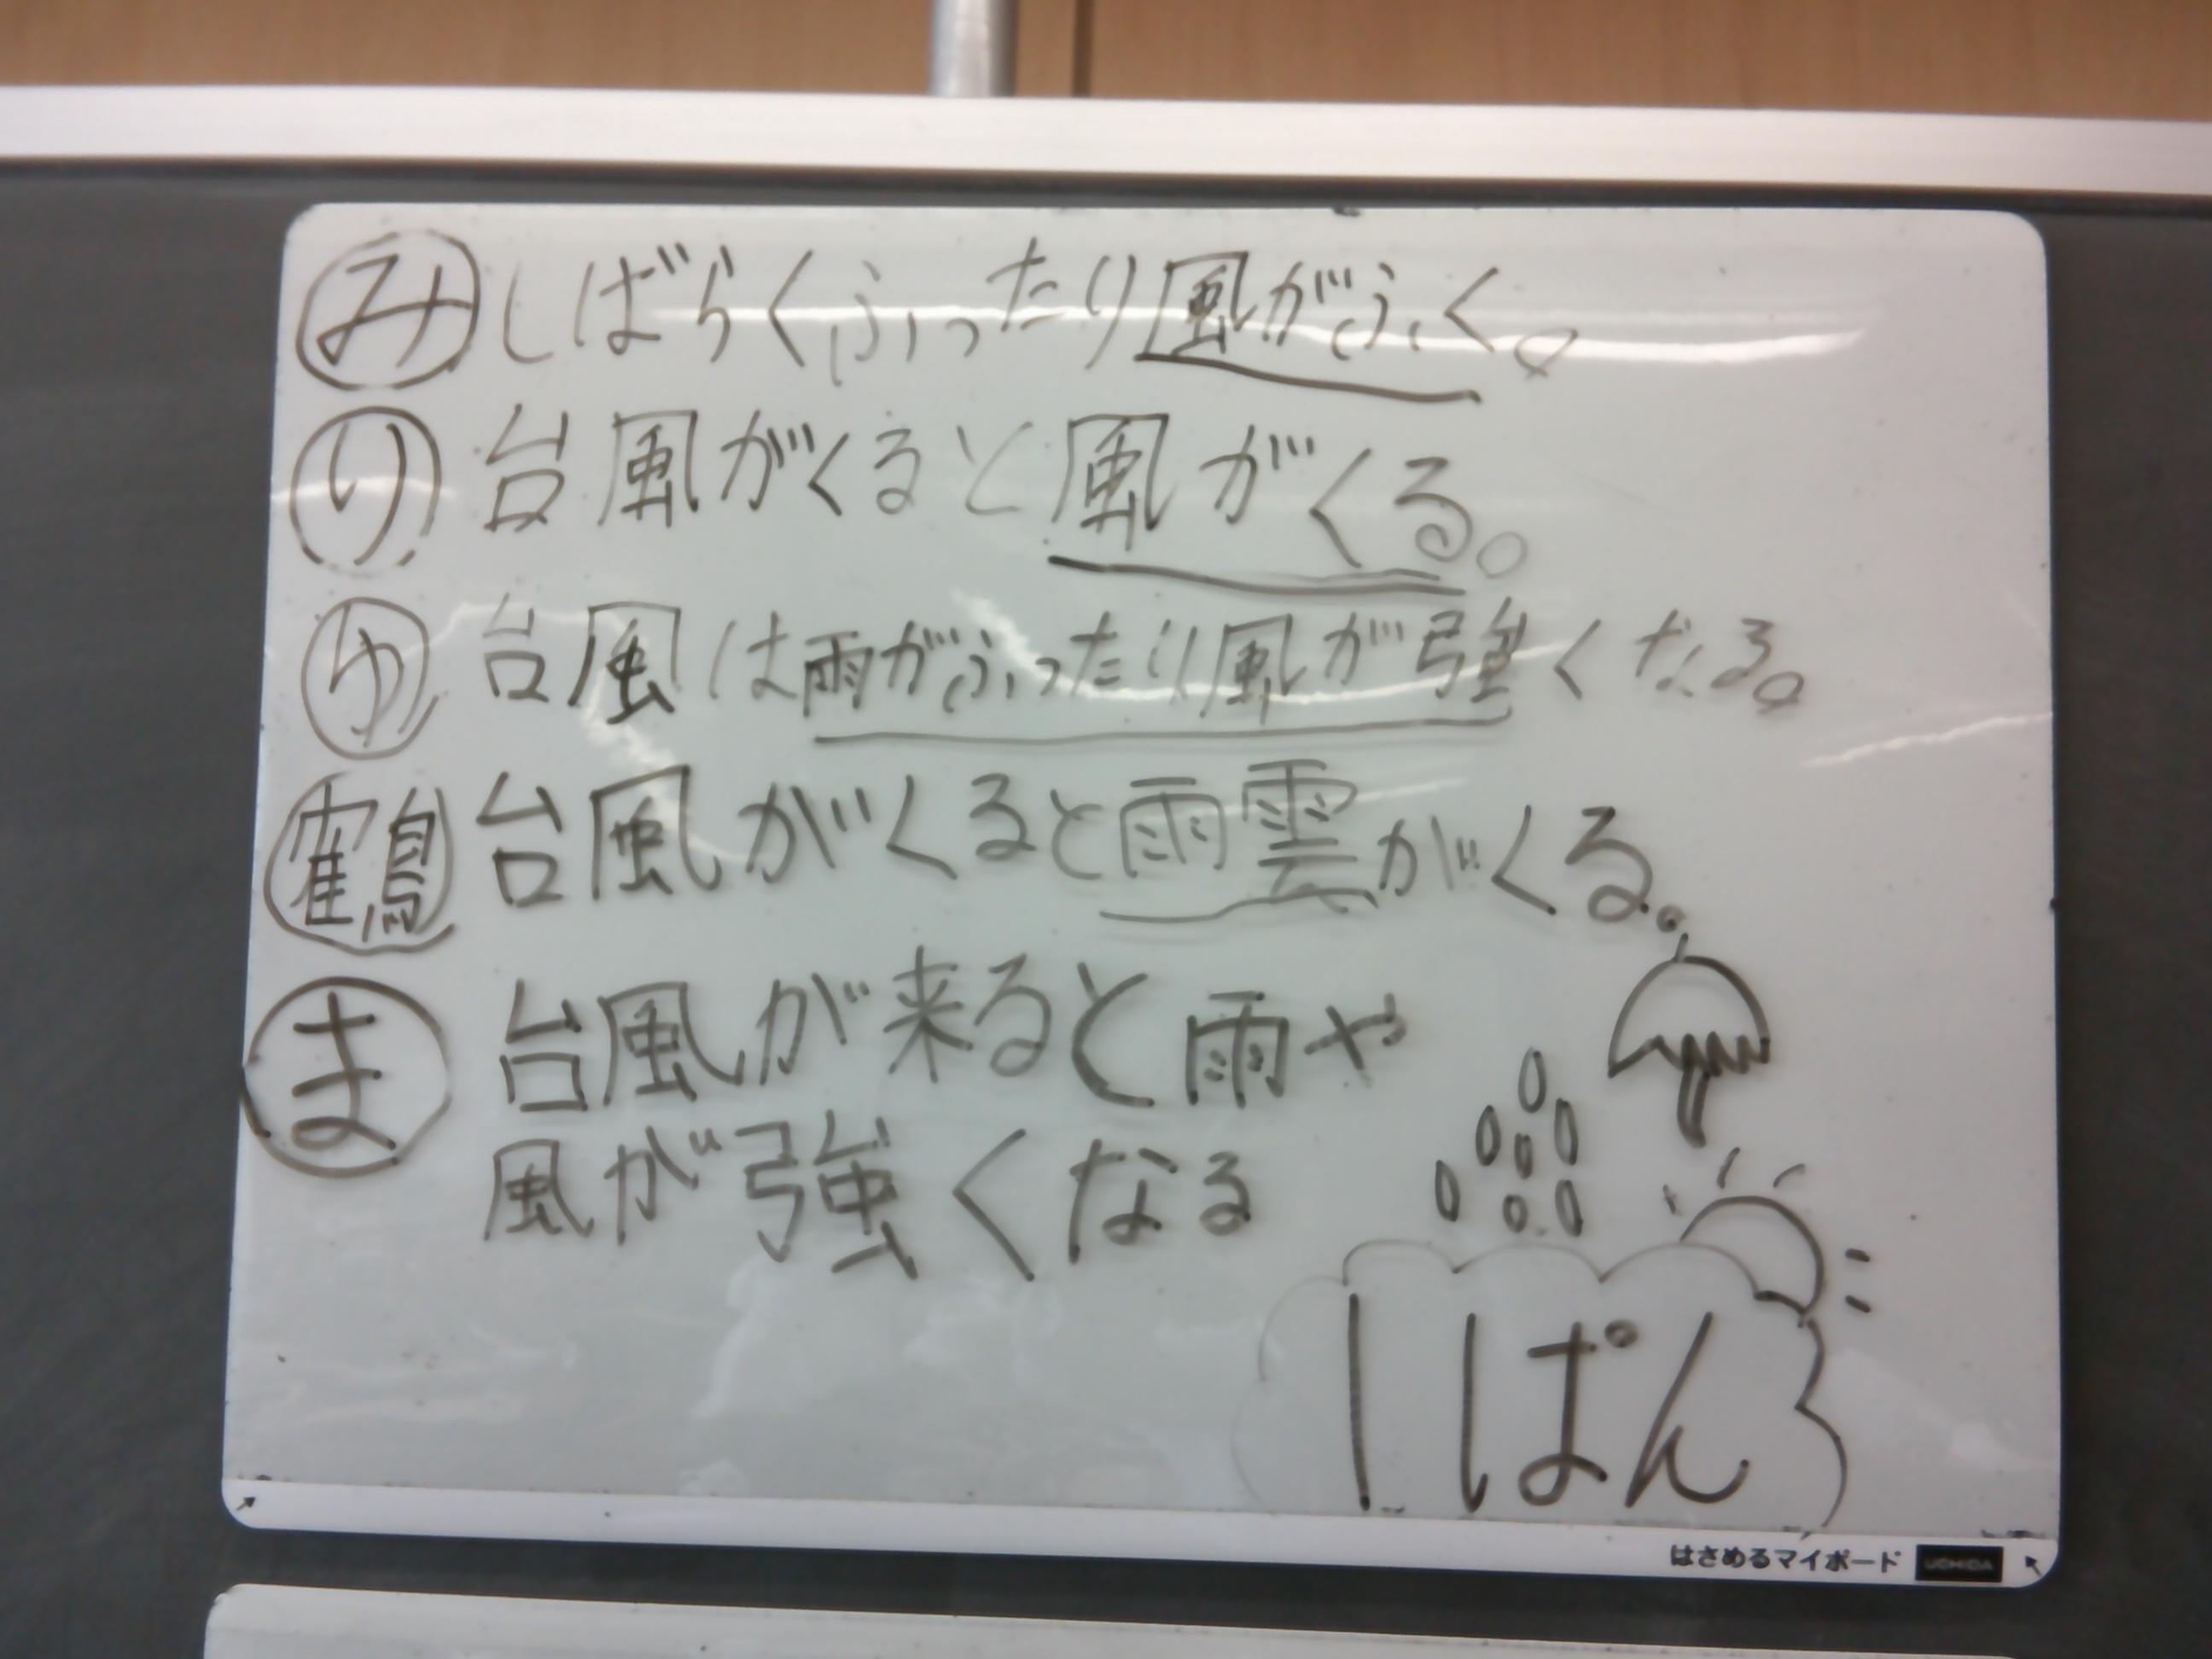 み しばらくふったり風がふく。
り 台風がくると風がくる。
ゆ 台風は雨がふったり風が強くなる。
鶴 台風がくると雨雲がくる。
ま 台風が来ると雨や
風が強くなる
1ぱん
はさめるマイボード UCHIDA